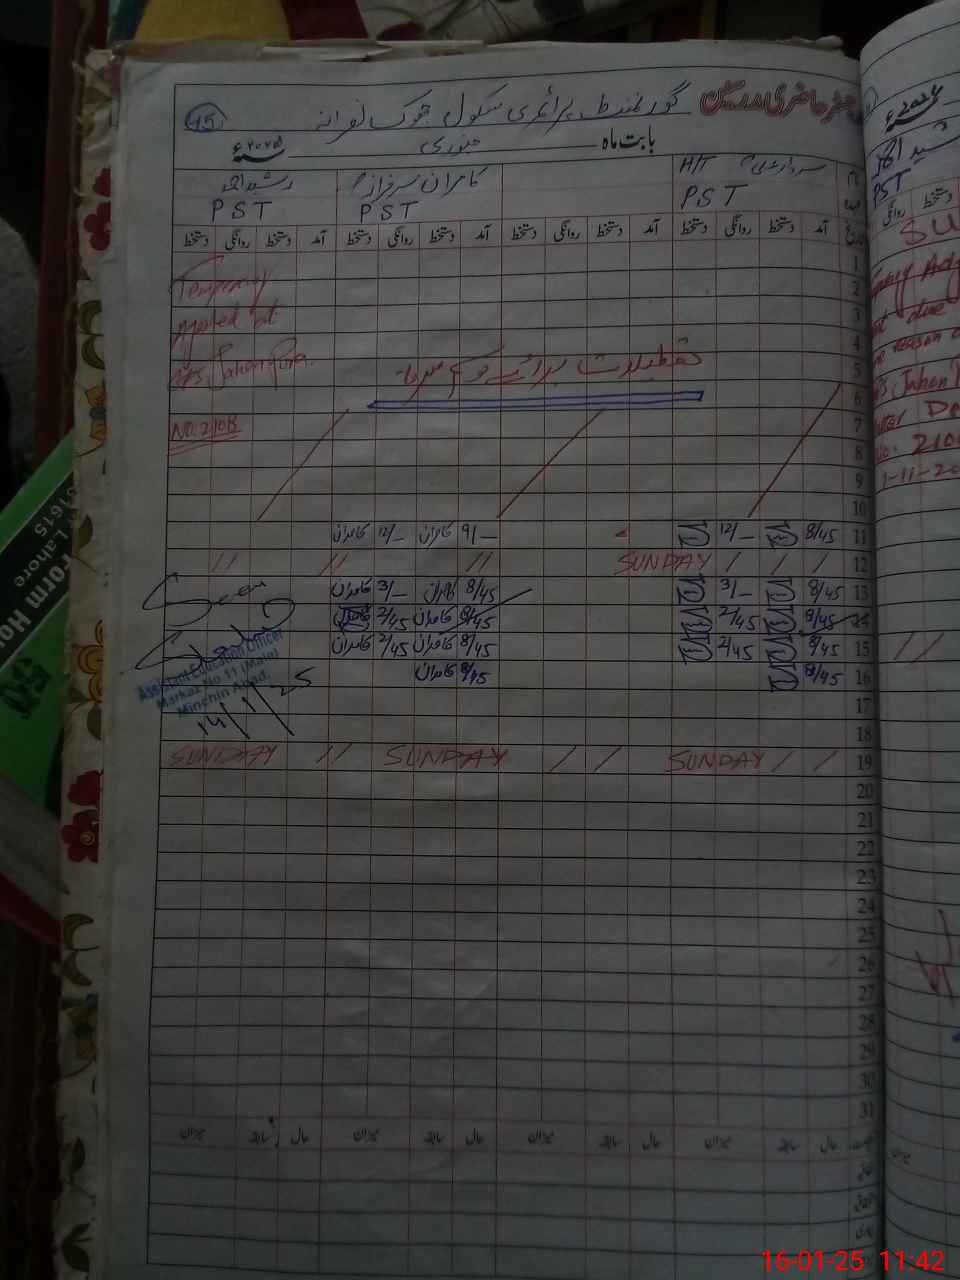 دفتر حاضری مدرسین گورنمنٹ پرائمری سکول جھوک نورانہ 15
بابت ماہ جنوری ۲۰۲۵ء
H/T کامران سرفراز رشید احمد
PST PST PST
تاریخ آمد دستخط روانگی دستخط آمد دستخط روانگی دستخط آمد دستخط روانگی دستخط آمد دستخط روانگی دستخط
1
Temporary 2
3
4
تعطیلات برائے موسم سرما 5
6
NO. 2108 7
8
9
10
11 8/45 12/- 9/- کامران 12/- کامران
12 / / / SUNDAY // // //
13 8/45 3/- 8/45 کامران 3/- کامران
8/45 2/45 8/45 کامران 2/45
15 8/45 2/45 8/45 کامران 2/45 کامران
16 8/45 8/45 کامران
Seen
Assistant Education Officer
Markaz No.11 (Male)
Minchin Abad.
14/1/25
17
18
19 / / SUNDAY / / SUNDAY // SUNDAY
20
21
22
23
24
25
26
27
28
29
30
31
حال سابقہ میزان حال سابقہ میزان حال سابقہ میزان حال سابقہ میزان
رشید احمد
PST
روانگی دستخط
SU
due
reason
Jahan
2108
-11-20
//
میزان
51615
Lahore
Form Ho
50
16-01-25 11:42